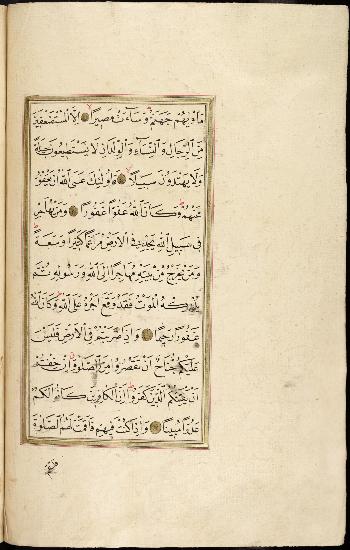 مأويهم جهنم وساءت مصيرا إلا المستضعفين
من الرجال والنساء والولدان لا يستطيعون حيلة
ولا يهتدون سبيلا فأولئك عسى الله أن يعفو
عنهم وكان الله عفوا غفورا ومن يهاجر
في سبيل الله يجد في الأرض مراغما كثيرا وسعة
ومن يخرج من بيته مهاجرا إلى الله ورسوله ثم
يدركه الموت فقد وقع أجره على الله وكان الله
غفورا رحيما وإذا ضربتم في الأرض فليس
عليكم جناح أن تقصروا من الصلوة إن خفتم
أن يفتنكم الذين كفروا إن الكافرين كانوا لكم
عدوا مبينا وإذا كنت فيهم فأقمت لهم الصلوة